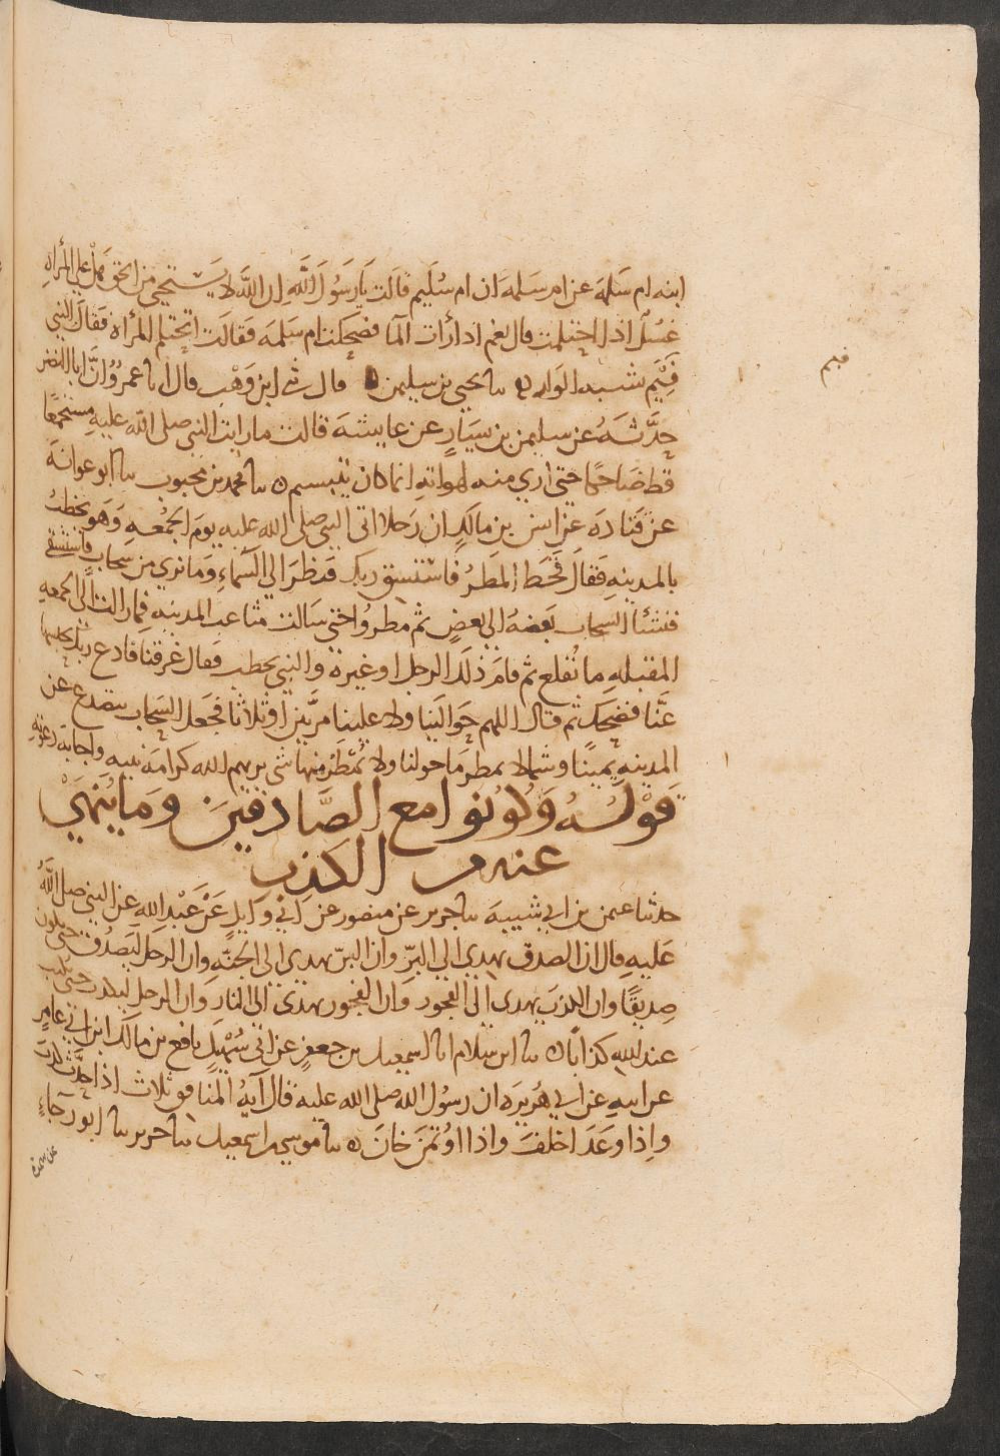 ابنه ام سَلمَة عن ام سَلمَة ان ام سُلَيم قالَت يَا رَسُولَ اللَّه ان اللَّهَ لا يَسْتحيى من الحق فهَلْ على المرأه
غسْلٌ اذا احتلمت قال نعم اذا رأت الما فضحكت ام سَلمَه فقالَت اتحتلم المرأة فقالَ النبي
فَيِّم شبه الولد ٥ سا يحيى بن سليمن ٥ قال ثنى ابن وَهْب قال انا عمرُوُ انَّ ابا النضر
حدَّثهُ عن سليمن بن سيَارٍ عن عايشة قالت ما رايت النبي صلى الله عليه مستجمعًا
قط ضاحكًا حتى ارى منه لهواته انما كان يتبسم ٥ سا محمد بن محبوب سا ابو عوانة
عن قتادَه عن انس بن مالكٍ ان رَجلا اتى النبي صلى الله عليه يومَ الجمُعهِ وَهو يخطبُ
بالمدينهِ فقالَ قحَط المطَرُ فاسْتسق ربك فنظَرَ الى السَّماءِ وَما نرى من سحابٍ فاستسقى
فنشئا السحاب بعَضهُ الى بعضٍ ثم مطروا حتى سَالت مثاعب المدينه فما زالت الى الجمعه
المقبله ما تُقلع ثم قامَ ذلك الرجل او غيره والنبي يخطب فقال غرقنا فادع ربك يحبسها
عنَّا فضحك ثم قال اللهم حَوالَينا ولا علينا مرَّتين او ثلاثا فجعل السَّحاب يتصدع عن
المدينه يمينًا وشمالا يمطر مَا حولنا ولا تُمْطَرُ منها شى يريهم الله كرامَة نبيه واجابة دعوتهِ
قَوْلُهُ وَكُونوا مع الصَّادقينَ وَما يُنهَىْ
عنه من الكَذب
حدثنا عثمن بن ابي شيبة سا جرير عن منصور عن ابي وَايلٍ عَنْ عَبْدِ اللهِ عن النبي صلى اللَّهُ
عَليهِ قال ان الصدق يهدى الى البِرِّ وان البرّ يهدى الى الجنَّهِ وان الرجل ليَصدُق حتى يكون
صِديقًا وان الكذبَ يهدى الى الفجور وَان الفجور يهدى الى النار وَان الرجل ليكذب حتى يكتب
عند اللهِ كذابًا ٥ سا ابن سَلام انا اسمعيل بن جعفرٍ عن ابي سُهَيلٍ نافع بن مالك ابن ابي عامرٍ
عن ابيهِ عن ابي هُريرَه ان رسُول الله صلى الله عليه قال آيةُ المنافق ثلاث اذا حدَّث كذبَ
وإذا وعَدَ اخلفَ واذا اؤتمنَ خانَ ٥ سا موسى بن اسمعيل سا جرير سا ابو رجَاءٍ
عن سمرة
فيم